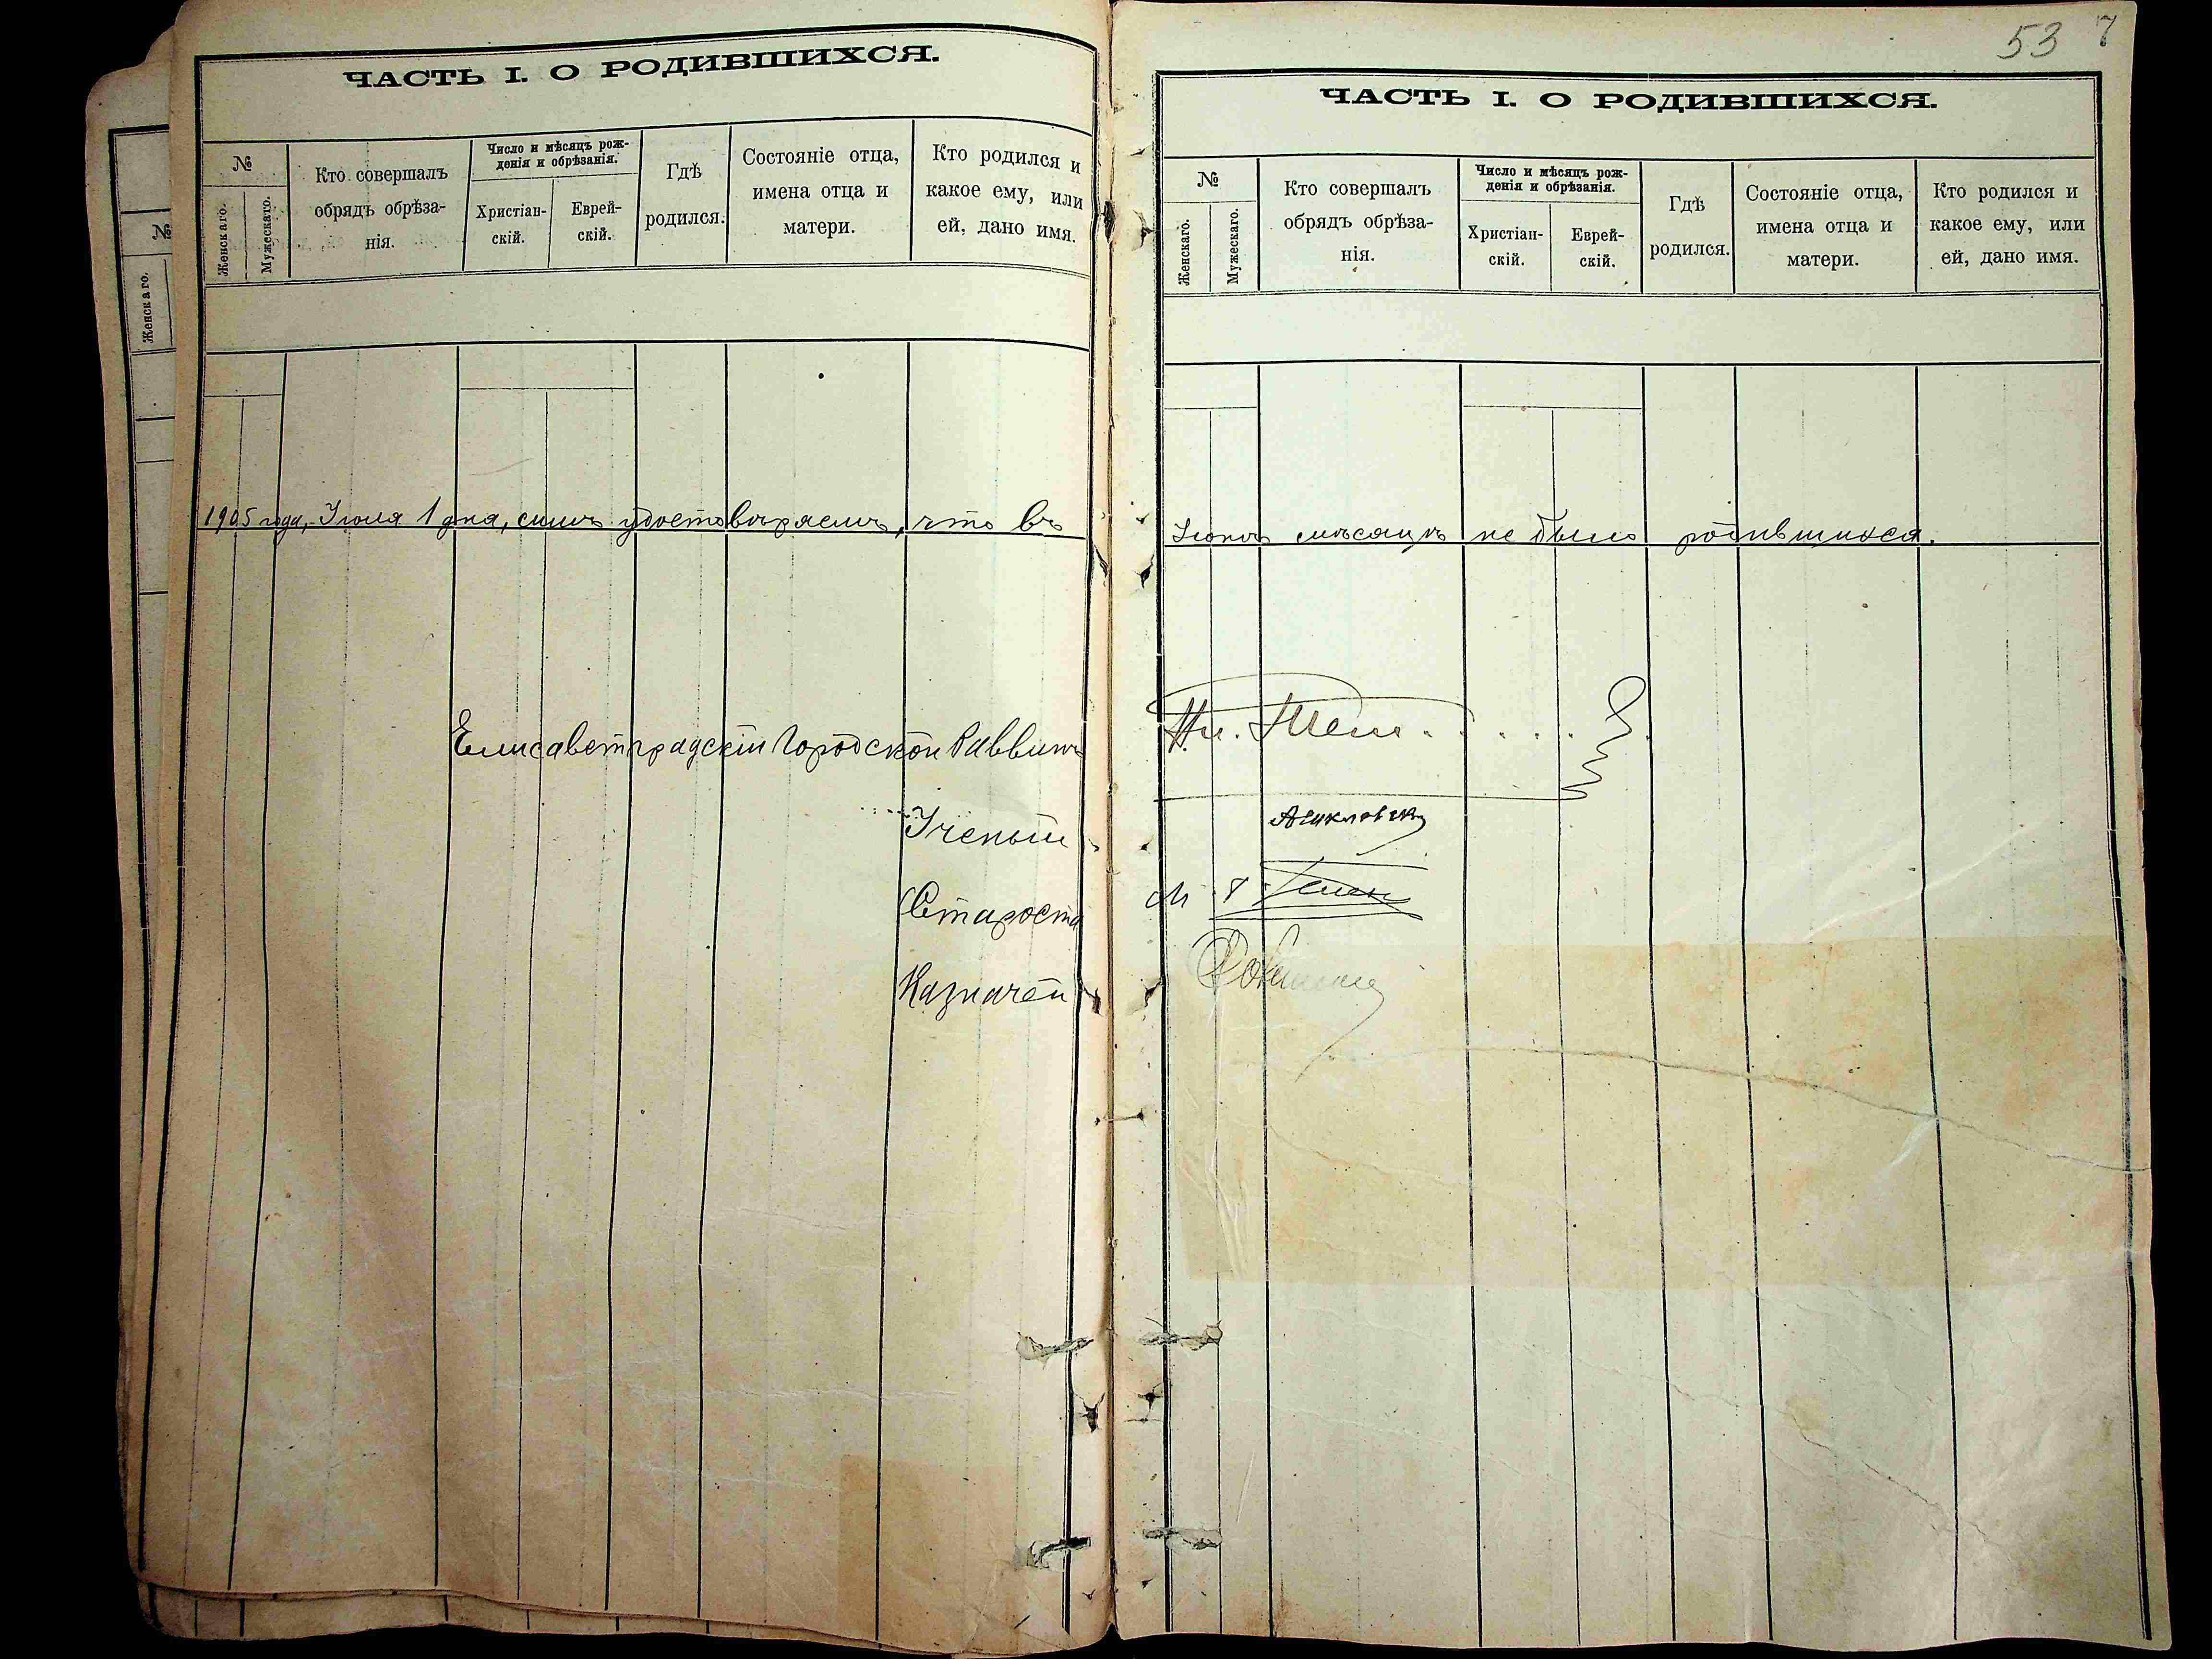 ЧАСТЬ I. О РОДИВШИХСЯ.
№
Женскаго.
Мужескаго.
Кто совершалъ
обрядъ обрѣза-
нія.
Число и мѣсяцъ рож-
денія и обрѣзанія.
Христіан-
скій.
Еврей-
скій.
Гдѣ
родился.
Состояніе отца,
имена отца и
матери.
Кто родился и
какое ему, или
ей, дано имя.
№
Женскаго.
1905 года, Іюля 1 дня, симъ удостовѣряемъ, что въ
Елисаветградскій Городской Раввинъ
Ученый
Староста
Казначей
53 7
ЧАСТЬ I. О РОДИВШИХСЯ.
№
Женскаго.
Мужескаго.
Кто совершалъ
обрядъ обрѣза-
нія.
Число и мѣсяцъ рож-
денія и обрѣзанія.
Христіан-
скій.
Еврей-
скій.
Гдѣ
родился.
Состояніе отца,
имена отца и
матери.
Кто родился и
какое ему, или
ей, дано имя.
Іюнѣ мѣсяцѣ не было родившихся.